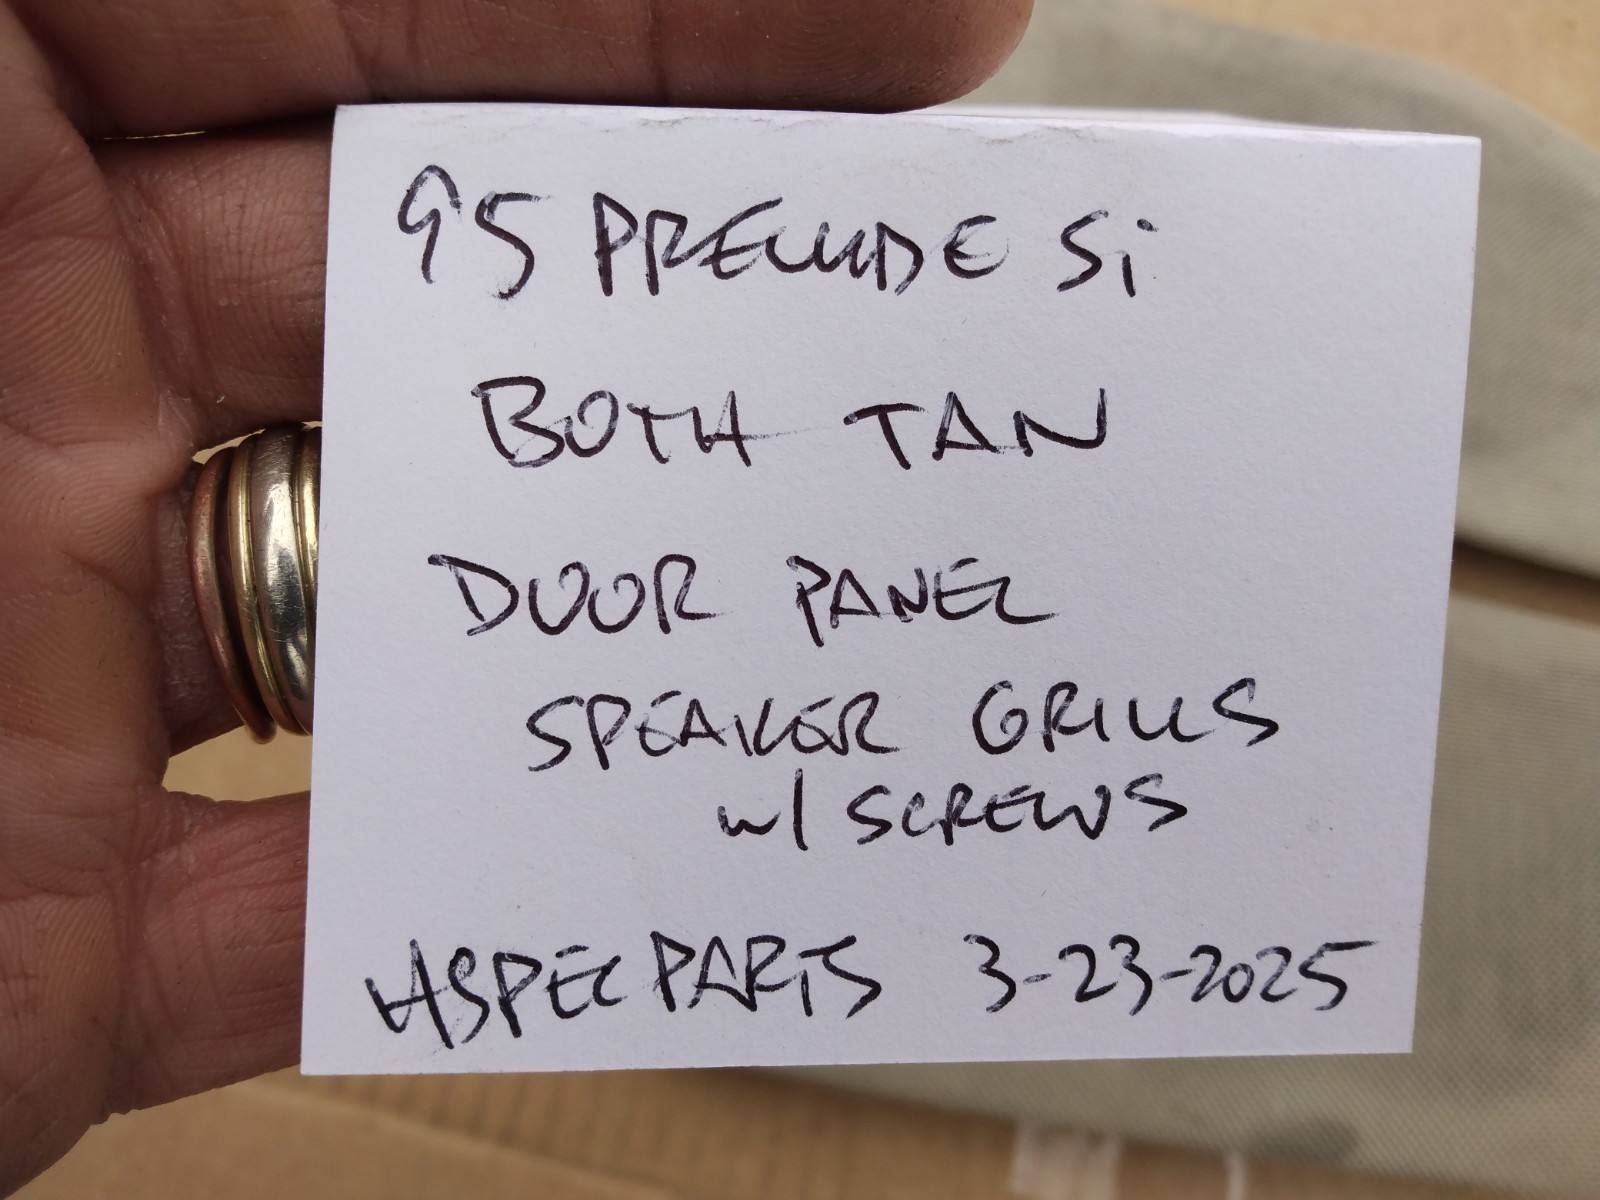 95 PRELUDE Si
BOTH TAN
DOOR PANEL
SPEAKER GRILLS
w/ SCREWS
ASPECPARTS 3-23-2025